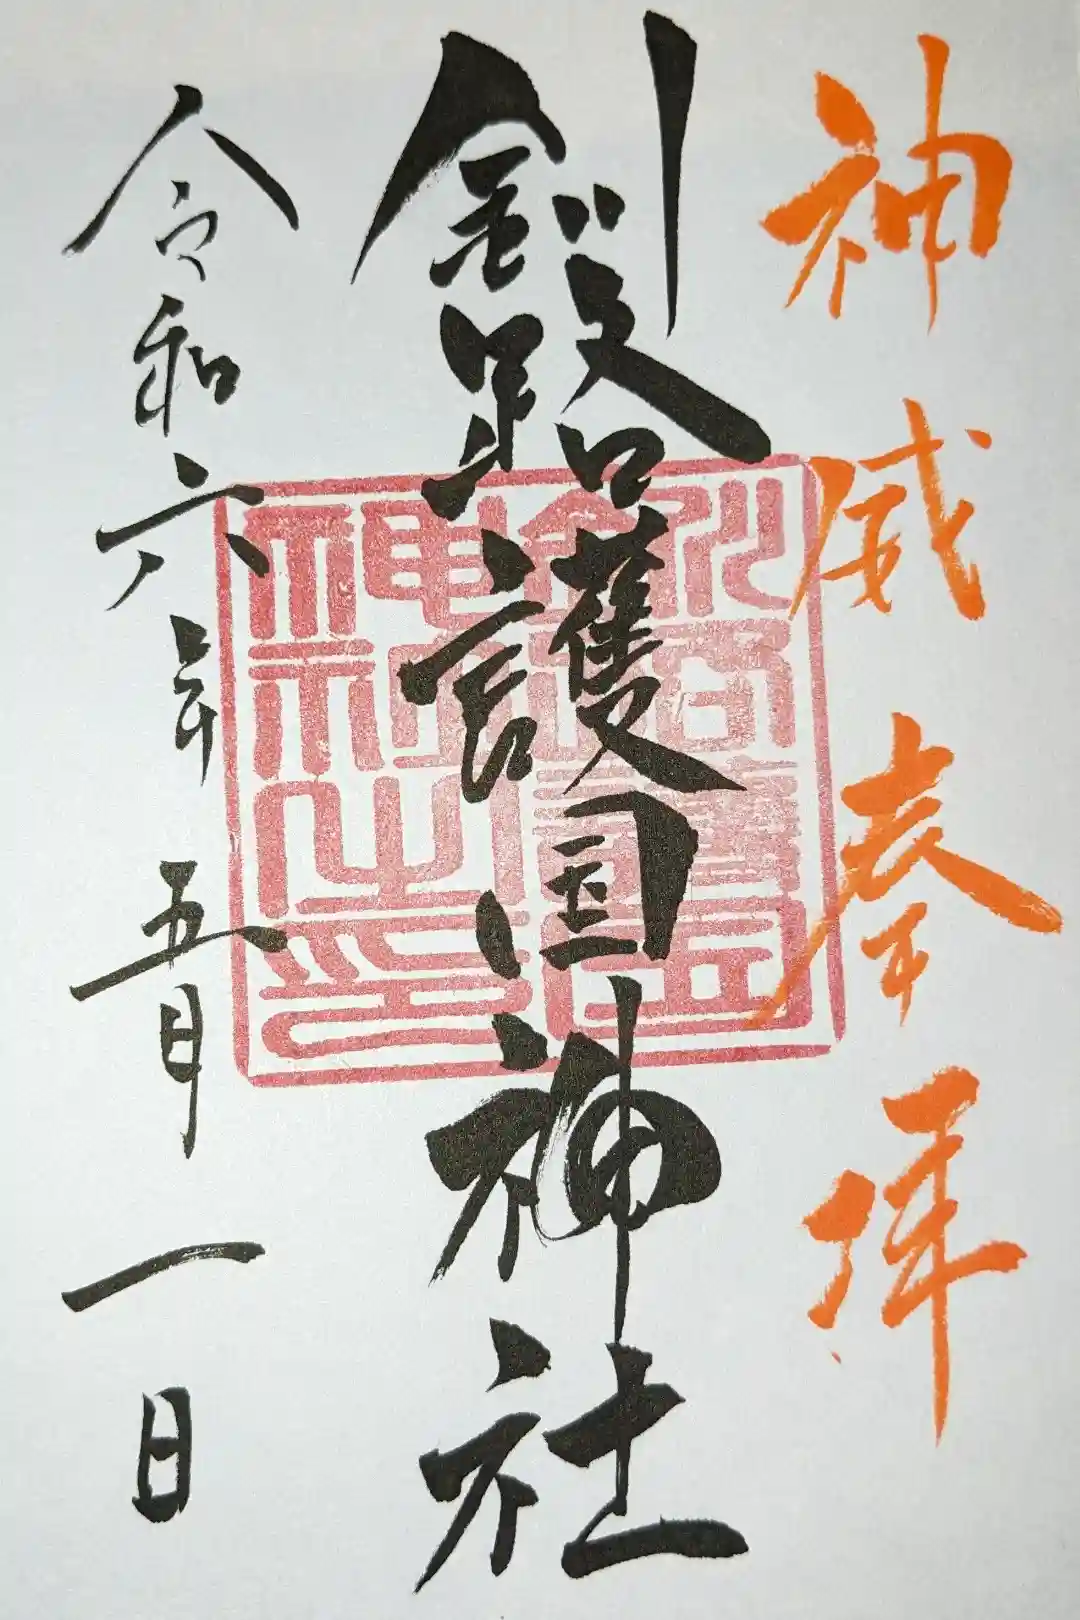 神威奉拝
釧路護国神社
令和六年五月一日
釧路護國神社之印